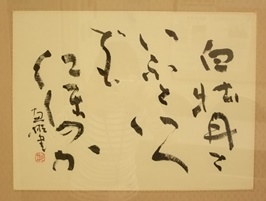 白牡丹と
いふといへ
ども
紅ほのか